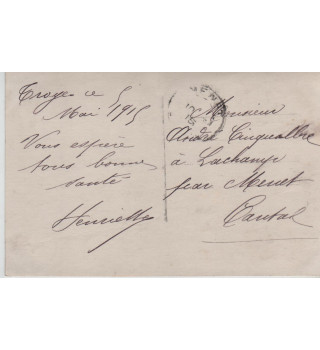 Troyes ce 5
Mai 1915
Vous espère
tous bonne
santé
Henriette
MENET
Monsieur
André Cinqualbre
à Lachamp
par Menet
Cantal